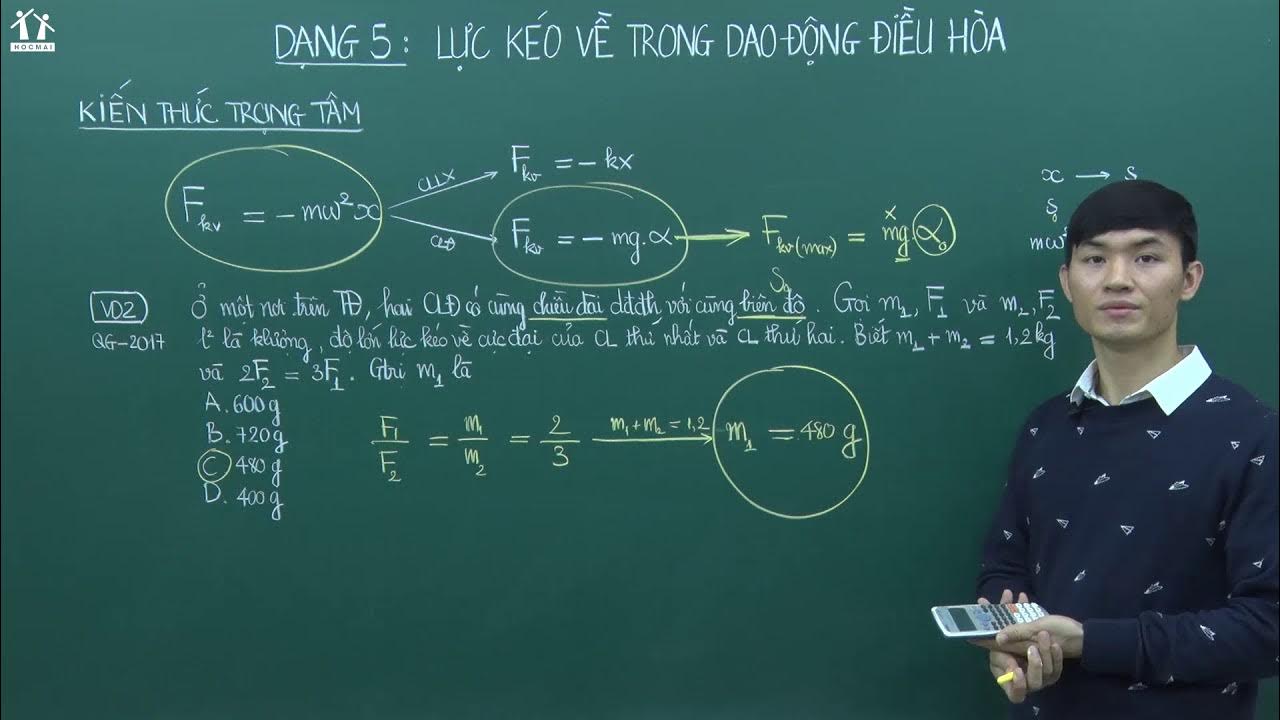 HOCMAI
DẠNG 5: LỰC KÉO VỀ TRONG DAO ĐỘNG ĐIỀU HÒA
KIẾN THỨC TRỌNG TÂM
F_kv = - mω²x
CLLX
F_kv = - kx
CLĐ
F_kv = - mg.α
F_kv(max) = mg.α₀
x
S₀
x → s
mω²
VD2
Ở một nơi trên TĐ, hai CLĐ có cùng chiều dài dđđh với cùng biên độ. Gọi m₁, F₁ và m₂, F₂
QG-2017
l² là khượng, độ lớn lực kéo về cực đại của CL thứ nhất và CL thứ hai. Biết m₁ + m₂ = 1,2kg
và 2F₂ = 3F₁. Gtrị m₁ là
A. 600g
B. 720g
C. 480g
D. 400g
F₁/F₂ = m₁/m₂ = 2/3
m₁ + m₂ = 1,2
m₁ = 480 g